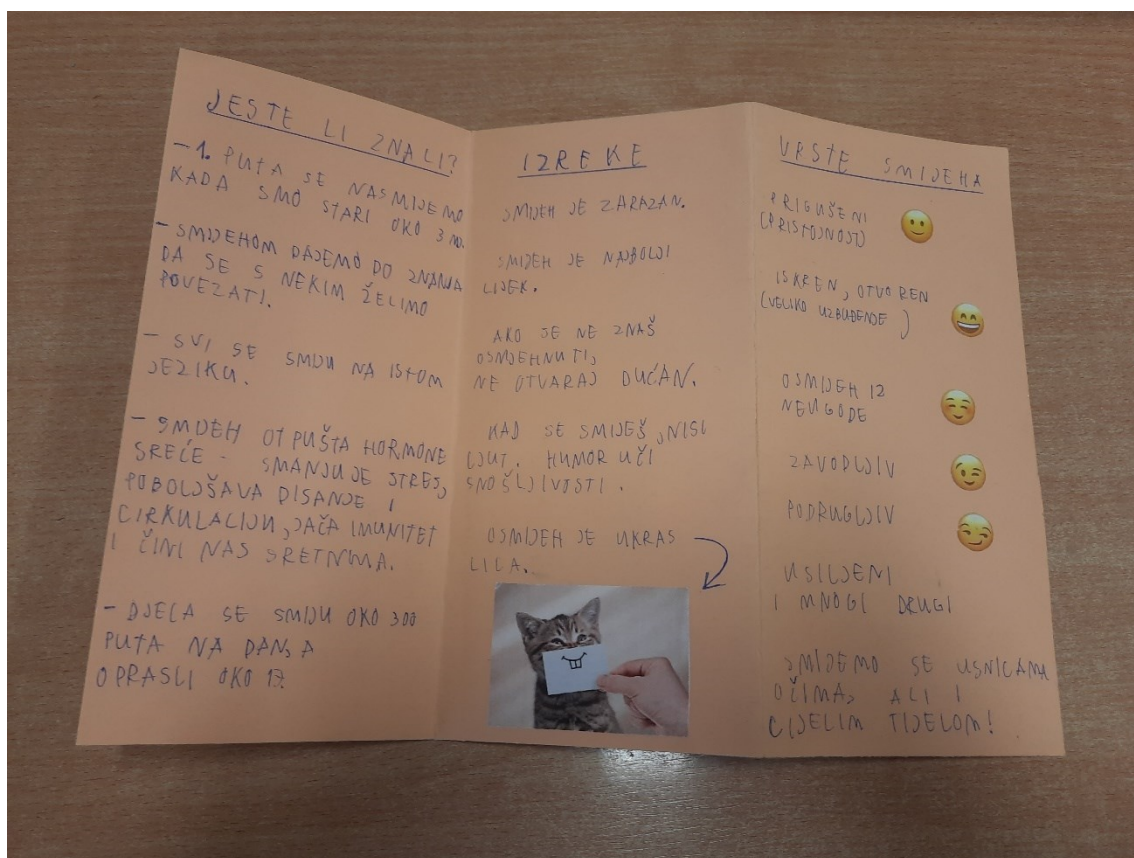 JESTE LI ZNALI?
- 1. PUTA SE NASMIJEMO
KADA SMO STARI OKO 3 MJ.
- SMIJEHOM DAJEMO DO ZNANJA
DA SE S NEKIM ŽELIMO
POVEZATI.
- SVI SE SMIJU NA ISTOM
JEZIKU.
- SMIJEH OTPUŠTA HORMONE
SREĆE - SMANJUJE STRES,
POBOLJŠAVA DISANJE I
CIRKULACIJU, JAČA IMUNITET
I ČINI NAS SRETNIMA.
- DJECA SE SMIJU OKO 300
PUTA NA DAN, A
ODRASLI OKO 17.
IZREKE
SMIJEH JE ZARAZAN.
SMIJEH JE NAJBOLJI
LIJEK.
AKO SE NE ZNAŠ
OSMJEHNUTI,
NE OTVARAJ DUĆAN.
KAD SE SMIJEŠ, NISI
LJUT. HUMOR UČI
SNOŠLJIVOSTI.
OSMIJEH JE UKRAS
LICA.
VRSTE SMIJEHA
PRIGUŠENI
(PRISTOJNOST)
ISKREN, OTVOREN
(VELIKO UZBUĐENJE)
OSMIJEH IZ
NEUGODE
ZAVODLJIV
PODRUGLJIV
USILJENI
I MNOGI DRUGI
SMIJEMO SE USNICAMA
OČIMA, ALI I
CIJELIM TIJELOM!